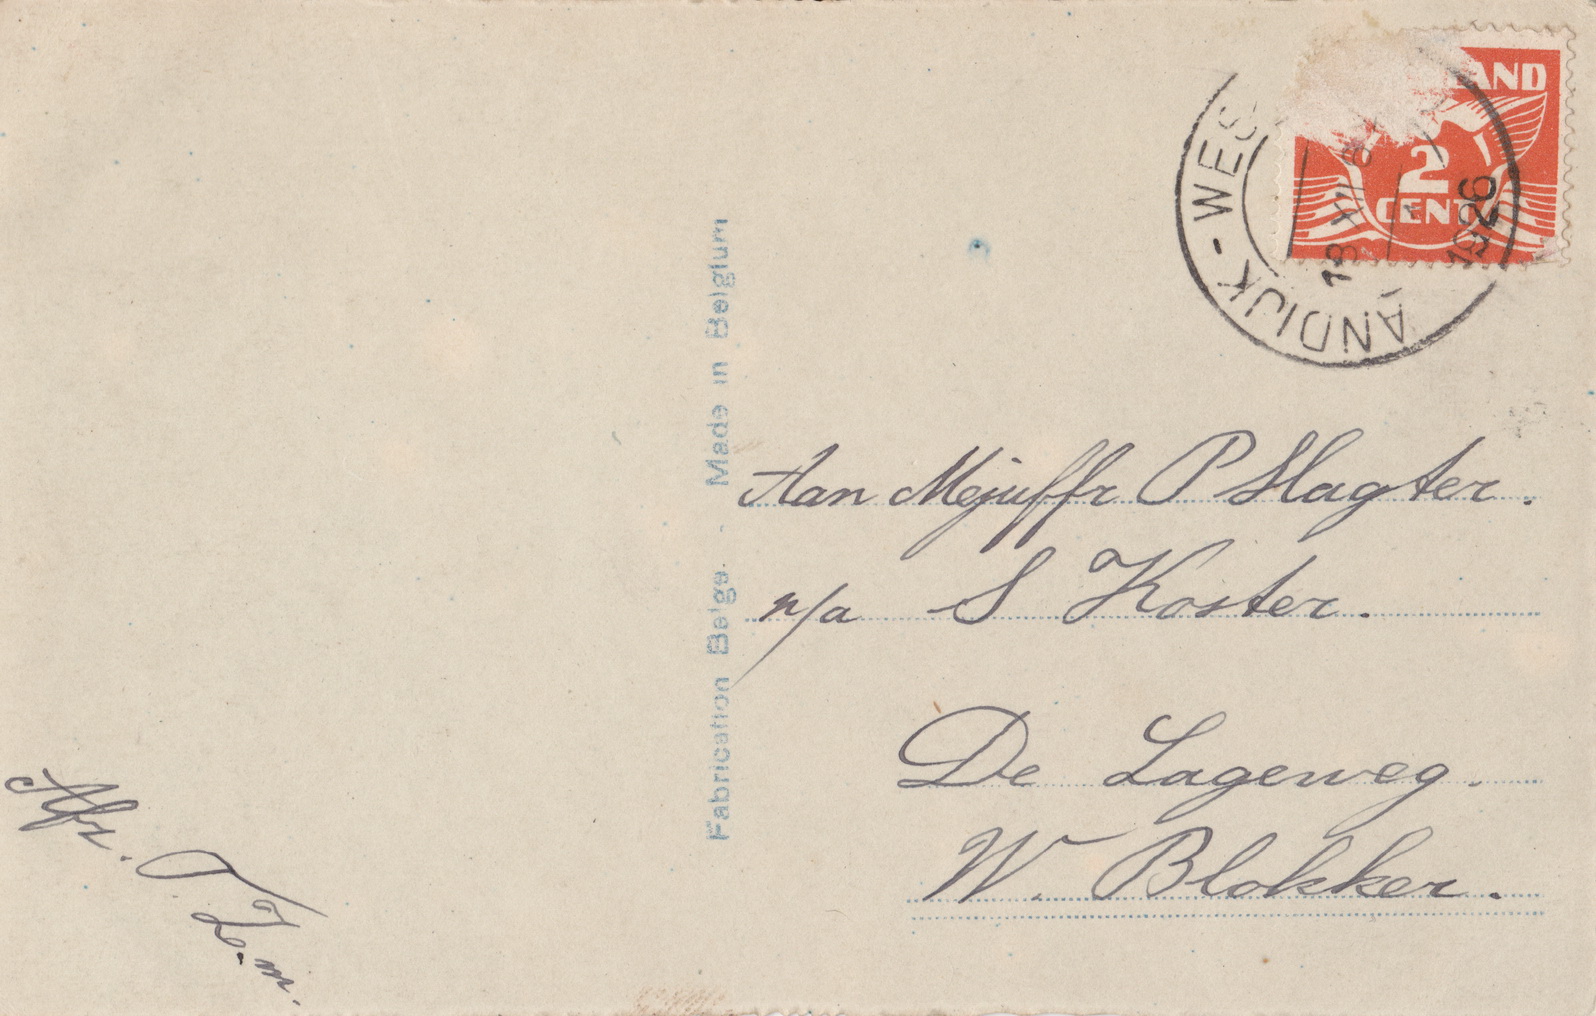 LAND
2
CENT
ANDIJK - WES
18 XII 8
1926
Fabrication Belge. - Made in Belgium
Aan Mejuffr P Slagter.
p/a S Koster.
De Lageweg.
W. Blokker.
Afz. T. Z. m.